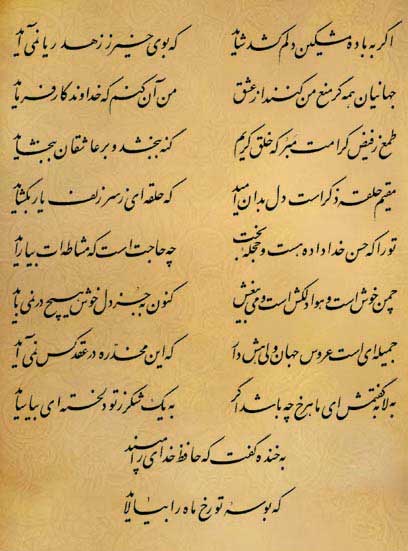 اگر به باده مشکین دلم کشد شاید که بوی خیر ز زهد ریا نمی آید
جهانیان همه گر منع من کنند از عشق من آن کنم که خداوندگار فرماید
طمع ز فیض کرامت مبر که خلق کریم گنه ببخشد و بر عاشقان ببخشاید
مقیم حلقه ذکر است دل بدان امید که حلقه ای ز سر زلف یار بگشاید
تو را که حسن خداداده هست و حجله بخت چه حاجت است که مشاطه ات بیاراید
چمن خوش است و هوا دلکش است و می بی غش کنون به جز دل خوش هیچ در نمی باید
جمیله ای است عروس جهان ولی هش دار که این مخدره در عقد کس نمی آید
به لابه گفتمش ای ماه رخ چه باشد اگر به یک شکر ز تو دلخسته ای بیاساید
به خنده گفت که حافظ خدای را مپسند
که بوسه تو رخ ماه را بیالاید